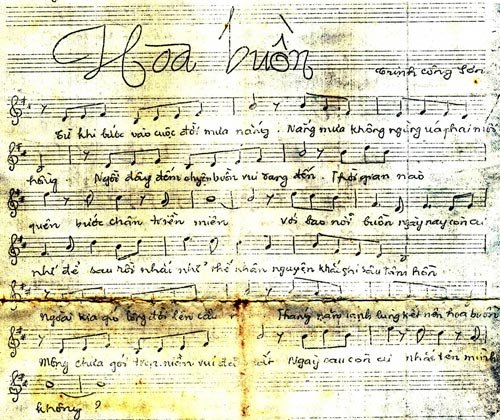 Hoa buồn
Trịnh Công Sơn
Từ khi bước vào cuộc đời mưa nắng. Nắng mưa không ngừng úa phai môi
hồng Ngồi đây đếm chuyện buồn vui đang đến. Thời gian nào
quên bước chân triền miên với bao nỗi buồn ngày nay còn ai
nhớ để sau rồi nhái như thế nhân nguyện khắc ghi sâu tâm hồn
Ngoài kia gió lòng đời lên cất Tháng năm lạnh lùng kết nên hoa buồn
Mộng chưa gói trọn niềm vui đã tắt Ngày sau còn ai nhắc tên mình
không?